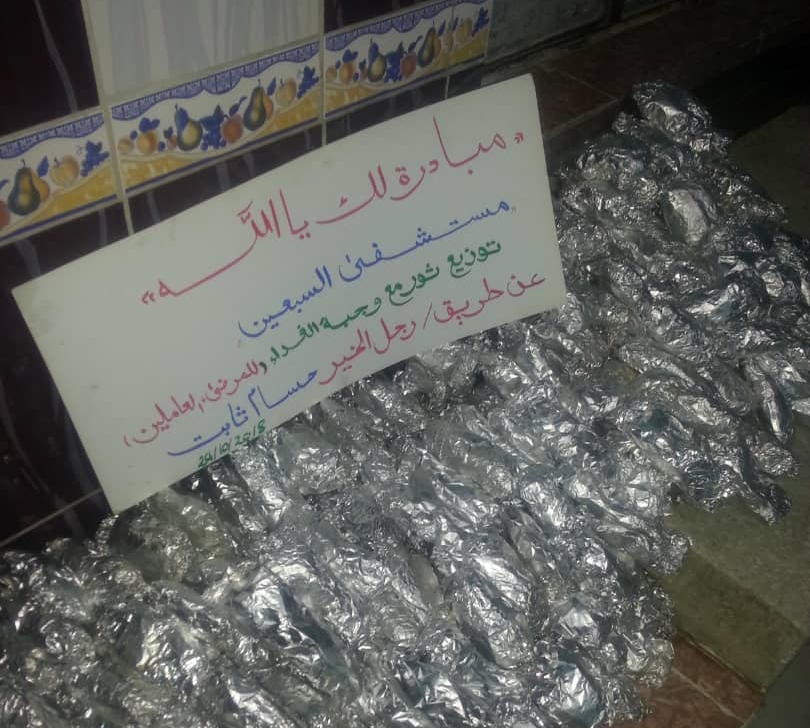 « مبادرة لك يا الله »
مستشفى السبعين
توزيع ثور مع وجبة الغداء وللمرضى، العاملين،
عن طريق / رجل الخير حسام ثابت
28/10/2018